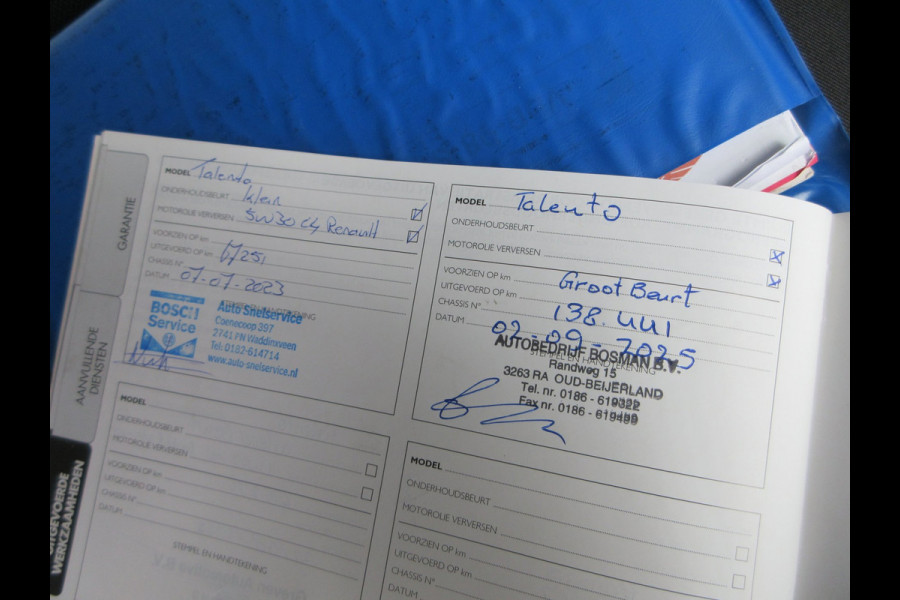 GARANTIE
AANVULLENDE
DIENSTEN
UITGEVOERDE
WERKZAAMHEDEN
MODEL Talento
ONDERHOUDSBEURT klein
MOTOROLIE VERVERSEN 5W30 C4 Renault
VOORZIEN OP km
UITGEVOERD OP km
CHASSIS N°
DATUM 07-07-2023
STEMPEL EN HANDTEKENING
BOSCH
Service
Auto Snelservice
Coenecoop 397
2741 PN Waddinxveen
Tel: 0182-614714
www.auto-snelservice.nl
MODEL Talento
ONDERHOUDSBEURT
MOTOROLIE VERVERSEN
VOORZIEN OP km Groot Beurt
UITGEVOERD OP km
CHASSIS N° 138.441
DATUM 02-09-2025
STEMPEL EN HANDTEKENING
AUTOBEDRIJF BOSMAN B.V.
Randweg 15
3263 RA OUD-BEIJERLAND
Tel. nr. 0186 - 619322
Fax nr. 0186 -
MODEL
ONDERHOUDSBEURT
MOTOROLIE VERVERSEN
VOORZIEN OP km
UITGEVOERD OP km
CHASSIS N°
DATUM
STEMPEL EN HANDTEKENING
MODEL
ONDERHOUDSBEURT
MOTOROLIE VERVERSEN
VOORZIEN OP km
UITGEVOERD OP km
CHASSIS N°
DATUM